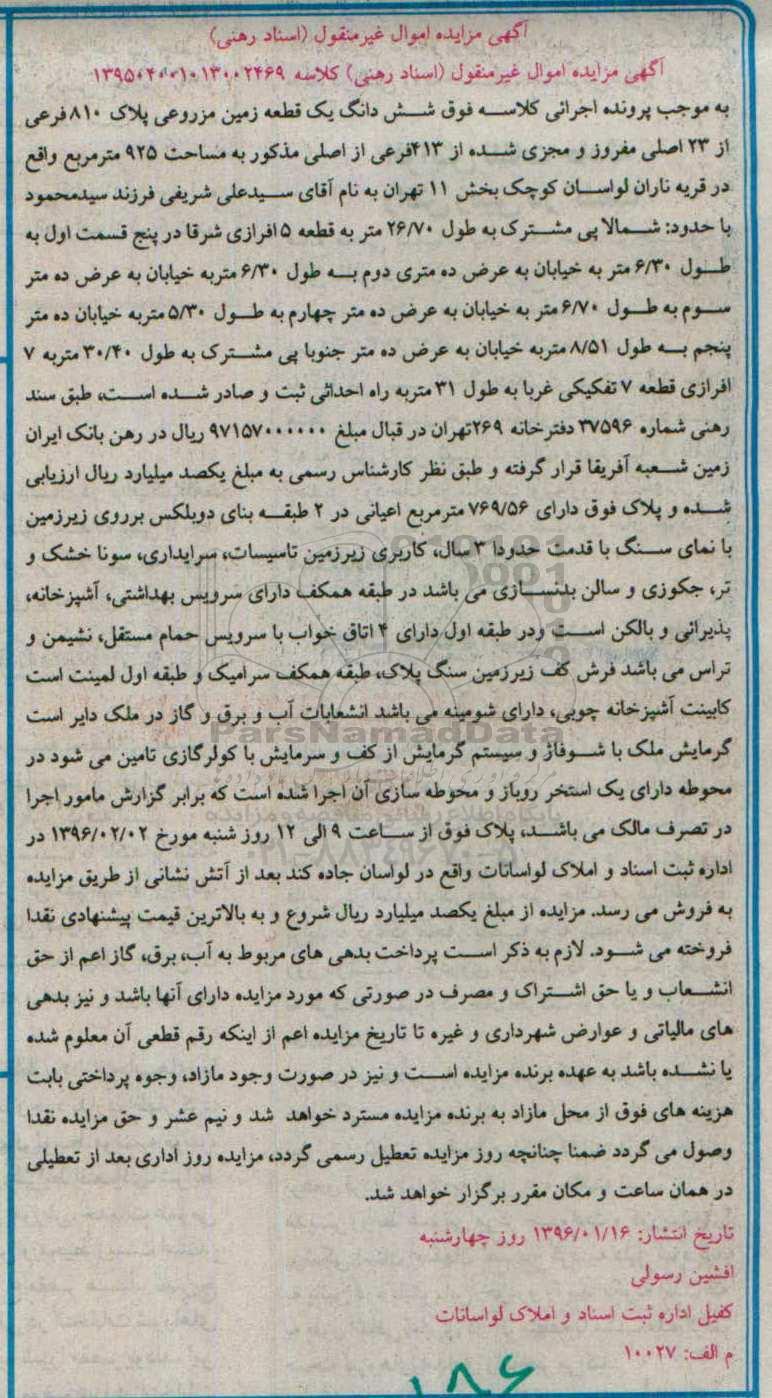 آگهی مزایده اموال غیرمنقول (اسناد رهنی)
آگهی مزایده اموال غیرمنقول (اسناد رهنی) کلاسه ۱۳۹۵۰۴۰۰۱۰۱۳۰۰۲۴۶۹
به موجب پرونده اجرائی کلاسه فوق شش دانگ یک قطعه زمین مزروعی پلاک ۸۱۰ فرعی
از ۲۳ اصلی مفروز و مجزی شده از ۴۱۳فرعی از اصلی مذکور به مساحت ۹۲۵ مترمربع واقع
در قریه ناران لواسان کوچک بخش ۱۱ تهران به نام آقای سیدعلی شریفی فرزند سیدمحمود
با حدود: شمالا پی مشترک به طول ۲۶/۷۰ متر به قطعه ۵ افرازی شرقا در پنج قسمت اول به
طول ۶/۳۰ متر به خیابان به عرض ده متری دوم به طول ۶/۳۰ متربه خیابان به عرض ده متر
سوم به طول ۶/۷۰ متر به خیابان به عرض ده متر چهارم به طول ۵/۳۰ متربه خیابان ده متر
پنجم به طول ۸/۵۱ متربه خیابان به عرض ده متر جنوبا پی مشترک به طول ۳۰/۴۰ متربه ۷
افرازی قطعه ۷ تفکیکی غربا به طول ۳۱ متربه راه احداثی ثبت و صادر شده است، طبق سند
رهنی شماره ۳۷۵۹۶ دفترخانه ۲۶۹تهران در قبال مبلغ ۹۷۱۵۷۰۰۰۰۰۰ ریال در رهن بانک ایران
زمین شعبه آفریقا قرار گرفته و طبق نظر کارشناس رسمی به مبلغ یکصد میلیارد ریال ارزیابی
شده و پلاک فوق دارای ۷۶۹/۵۶ مترمربع اعیانی در ۲ طبقه بنای دوبلکس برروی زیرزمین
با نمای سنگ با قدمت حدودا ۳ سال، کاربری زیرزمین تاسیسات، سرایداری، سونا خشک و
تر، جکوزی و سالن بدنسازی می باشد در طبقه همکف دارای سرویس بهداشتی، آشپزخانه،
پذیرائی و بالکن است ودر طبقه اول دارای ۴ اتاق خواب با سرویس حمام مستقل، نشیمن و
تراس می باشد فرش کف زیرزمین سنگ پلاک، طبقه همکف سرامیک و طبقه اول لمینت است
کابینت آشپزخانه چوبی، دارای شومینه می باشد انشعابات آب و برق و گاز در ملک دایر است
ParsNamadData
گرمایش ملک با شوفاژ و سیستم گرمایش از کف و سرمایش با کولرگازی تامین می شود در
محوطه دارای یک استخر روباز و محوطه سازی آن اجرا شده است که برابر گزارش مامور اجرا
در تصرف مالک می باشد، پلاک فوق از ساعت ۹ الی ۱۲ روز شنبه مورخ ۱۳۹۶/۰۲/۰۲ در
اداره ثبت اسناد و املاک لواسانات واقع در لواسان جاده کند بعد از آتش نشانی از طریق مزایده
به فروش می رسد. مزایده از مبلغ یکصد میلیارد ریال شروع و به بالاترین قیمت پیشنهادی نقدا
فروخته می شود. لازم به ذکر است پرداخت بدهی های مربوط به آب، برق، گاز اعم از حق
انشعاب و یا حق اشتراک و مصرف در صورتی که مورد مزایده دارای آنها باشد و نیز بدهی
های مالیاتی و عوارض شهرداری و غیره تا تاریخ مزایده اعم از اینکه رقم قطعی آن معلوم شده
یا نشده باشد به عهده برنده مزایده است و نیز در صورت وجود مازاد، وجوه پرداختی بابت
هزینه های فوق از محل مازاد به برنده مزایده مسترد خواهد شد و نیم عشر و حق مزایده نقدا
وصول می گردد ضمنا چنانچه روز مزایده تعطیل رسمی گردد، مزایده روز اداری بعد از تعطیلی
در همان ساعت و مکان مقرر برگزار خواهد شد.
تاریخ انتشار: ۱۳۹۶/۰۱/۱۶ روز چهارشنبه
افشین رسولی
کفیل اداره ثبت اسناد و املاک لواسانات
م الف: ۱۰۰۲۷
۱۸۶